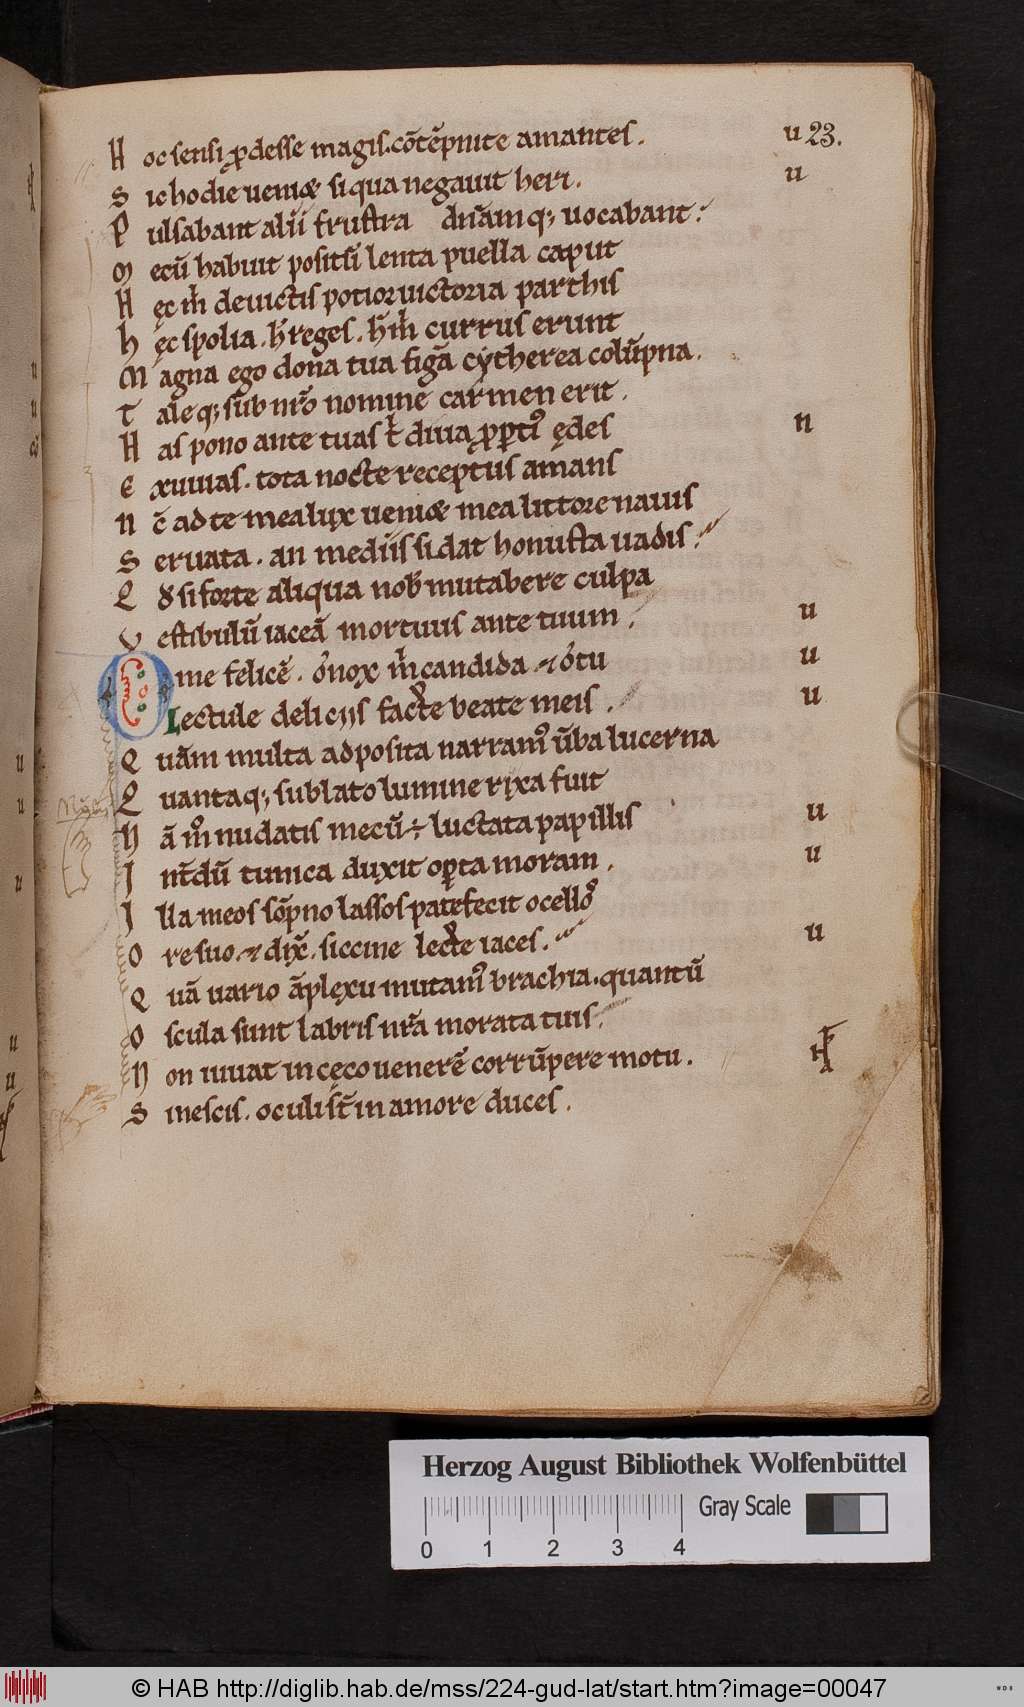 H oc sensi ꝓdesse magis. cõtẽpnite amantes. u 23.
S ic hodie ueniæ siqua negauit heri. u
P ulsabant alii frustra dñamq; uocabant:
M ecũ habuit positũ lenta puella caput
H ęc m̃ deuictis potior uictoria parthis
h ęc spolia. h̃ reges. h̃ m̃ currus erunt
M agna ego dona tua figã cytherea colũpna.
T aleq; sub nr̃o nomine carmen erit.
H as pono ante tuas t̃ diua ꝓꝑti᷒ ędes n
E xuuias. tota nocte receptus amans
N c̃ ad te mea lux ueniæ mea littore nauis
S eruata. an mediis sidat honusta uadis:
Q ď si forte aliqua nob̃ mutabere culpa
V estibulũ iaceã mortuus ante tuum. u
O me felicẽ. o᷒ nox m̃ candida. ⁊ o᷒ tu u
Lectule deliciis facte beate meis. u
Q uãm multa adposita narram᷒ ũba lucerna
Q uantaq; sublato lumine rixa fuit
N ã m᷒ nudatis mecũ ÷ luctata papillis u
I nt̃dũ tunica duxit oꝑta moram. u
I lla meos sõpno lassos patefecit ocello᷒
O re suo. ⁊ dix̃. siccine lecte iaces. u
Q uã uario ãplexu mutam᷒ brachia. quantũ
O scula sunt labris nr̃a morata tuis.
N on iuuat in cęco uenerẽ corrũpere motu.
S i nescis. oculi st̃ in amore duces.
Herzog August Bibliothek Wolfenbüttel
Gray Scale
0 1 2 3 4
© HAB http://diglib.hab.de/mss/224-gud-lat/start.htm?image=00047